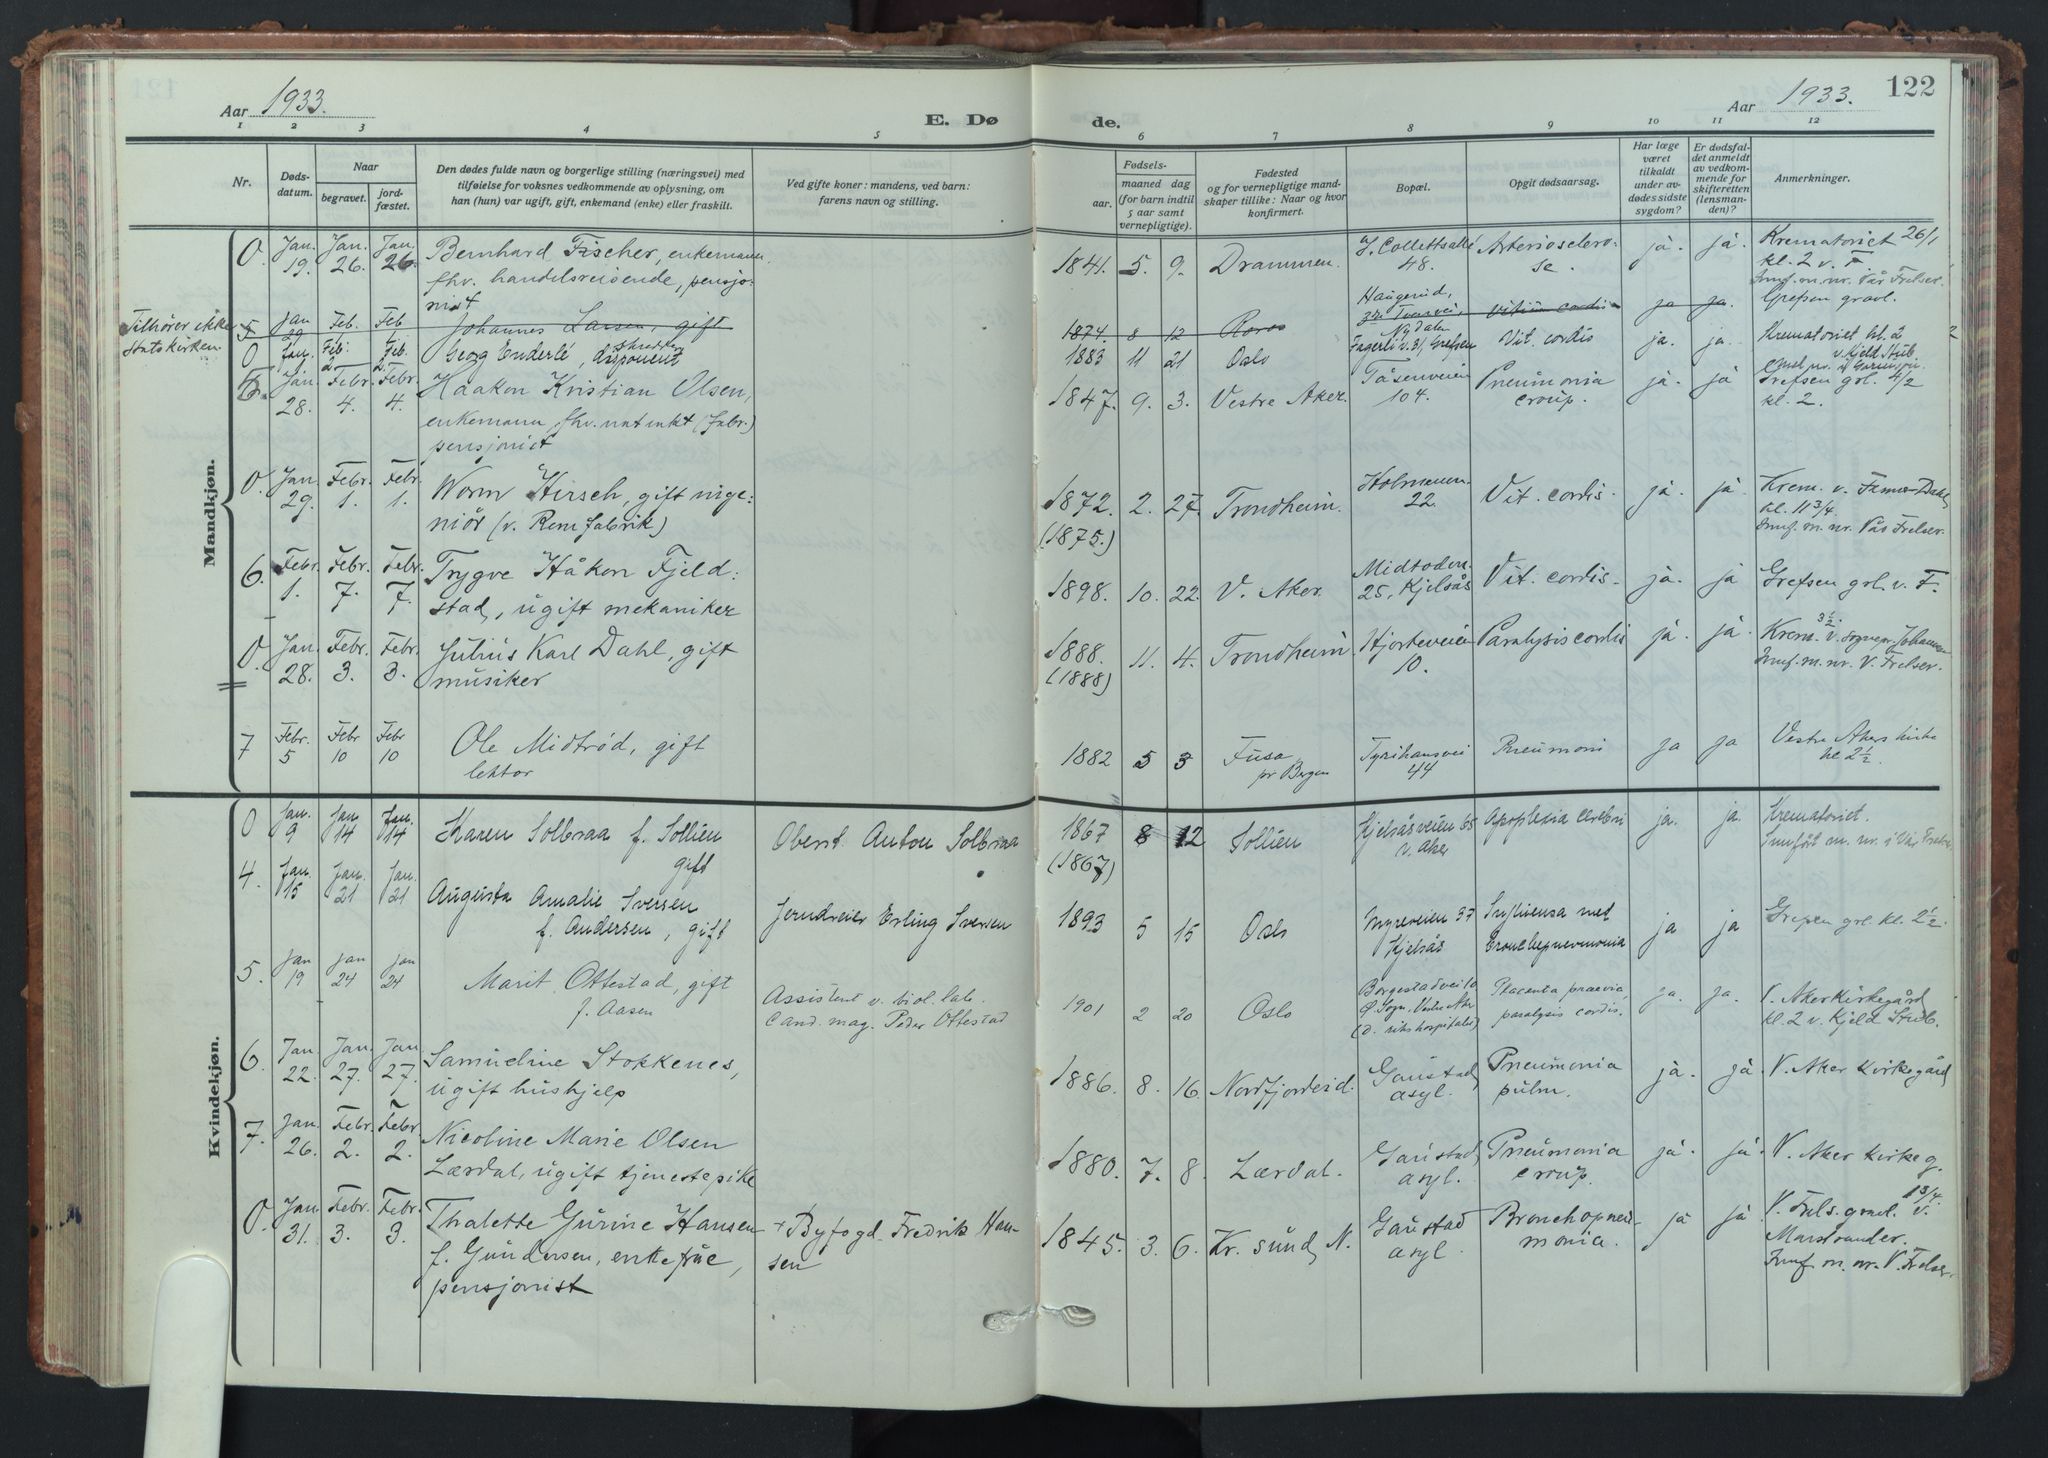 122
Aar 1933. Aar 1933.
E. Dø de.
1 2 3 4 5 6 7 8 9 10 11 12
Nr. Dødsdatum. Naar begravet. jordfæstet.
Den dødes fulde navn og borgerlige stilling (næringsvei) med
tilføielse for voksnes vedkommende av oplysning, om
han (hun) var ugift, gift, enkemand (enke) eller fraskilt.
Ved gifte koner: mandens, ved barn:
farens navn og stilling.
Fødsels-
aar. maaned dag
(for barn indtil
5 aar samt
vernepligtige).
Fødested
og for vernepligtige mand-
skaper tillike: Naar og hvor
konfirmert.
Bopæl.
Opgit dødsaarsag.
Har læge
været
tilkaldt
under av-
dødes sidste
sygdom?
Er dødsfal-
det anmeldt
av vedkom-
mende for
skifteretten
(lensman-
den)?
Anmerkninger.
Mandkjøn.
0. Jan. 19. Jan. 26. Jan. 26. Bernhard Fischer, enkemann 1841. 5. 9. Drammen. J. Colletts allé Arterioselero- ja. ja. Krematoriet 26/1
fhv. handelsreisende, pensjo- 48. se. kl. 2 v. F
nist Innf. m. nr. Vår Frelser.
Tilhører ikke
Statskirken.
5 Jan 29 Feb. Feb Johannes Larsen, gift 1874. 8 12 Røros Haugerud, Vitium cordis ja ja. Grefsen gravl.
Nydalen
0 Jan. Feb. 2 Feb. 2. Georg Enderlé, disponent 1883 11 21 Oslo Fagerli v. 31, Grefsen Vit. cordis ja. ja. Krematoriet, kl. 2
v. Kjeld Stub.
5. Jan 28. Febr. 4. Febr. 4. Haakon Kristian Olsen, 1847. 9. 3. Vestre Aker. Tåsenveien Pneumonia ja. ja Grefsen grl. 4/2
enkemann, fhv. (fabr.) 104. croup. kl. 2.
pensjonist
0. Jan. 29. Febr. 1. Febr. 1. Worm Hirsch, gift inge- 1872. 2. 27. Trondheim. Holmenvn. Vit. cordis. ja. ja. Krem. v.
niør (v. Rem fabrik) (1875.) 22. kl. 11 3/4.
Innf. m. nr. Vås Frelser.
6. Febr. 1. Febr. 7. Febr. 7. Trygve Håkon Fjeld- 1898. 10. 22. V. Aker. Midtoden. Vit. cordis. ja. ja Grefsen grl. v. F.
stad, ugift mekaniker 25, Kjelsås
0. Jan. 28. Febr. 3. Febr. 3. Julius Karl Dahl, gift 1888. 11. 4. Trondheim Hjorteveien Paralysis cordis ja. ja. Krem. 3 1/2. v. sognepr. Johannsen
musiker (1888) 10. Innf. m. nr. V. Frelser.
7 Febr. 5 Febr 10 Febr 10 Ole Midtrød, gift 1882 5 3 Fusa Tyrihansvei Pneumoni ja ja Vestre Akers kirke
lektor pr Bergen 44 kl 2 1/2.
Kvindekjøn.
0 Jan. 9 Jan 14 Jan. 14 Karen Solbraa f. Sollien Oberst. Anton Solbraa 1867 8 12 Sollien Kjelsåsveien 65 Apoplexia cerebri ja. ja. Krematoriet.
gift (1867) v. Aker Innført m. nr. i Vår Frelse
4. Jan. 15 Jan. 21 Jan. 21 Augusta Amalie Iversen Jerndreier Erling Iversen 1893 5 15 Oslo Myrerveien 37 Influensa med ja ja Grefsen grl. kl. 2 1/2.
f. Andersen, gift Kjelsås Bronchopneumonia
5. Jan 19 Jan 24 Jan 24 Marit Ottestad, gift Assistent v. biol. lab. 1901 2 20 Oslo Borgestadvei 10 Placenta praevia, ja. ja. V. Aker Kirkegård
f. Aasen Cand. mag. Peder Ottestad Ø. Sogn, Vestre Aker paralysis cordis. kl. 2 v. Kjeld Stub.
(d. rikshospitalet)
6. Jan. 22. Jan. 27. Jan 27. Samueline Stokkenes, 1886. 8. 16. Nordfjordeid. Gaustad Pneumonia ja. ja V. Aker kirkegård
ugift hushjelp asyl. pulm.
7. Jan. 26. Febr. 2. Febr. 2. Nicoline Marie Olsen 1880. 7. 8. Lærdal. Gaustad Pneumonia ja. ja. V. Aker kirkeg.
Lærdal, ugift tjenestepike asyl. croup.
0. Jan. 31. Febr. 3. Febr. 3. Thalette Gurine Hansen + Byfogd. Fredrik Han- 1845. 3. 6. Kr. sund N. Gaustad Bronchopneu- ja ja V. Frels. gravl. 1 3/4. v.
f. Gundersen, enkefrue, sen asyl. monia. Marstrander.
pensjonist Innf. m. nr. V. Frelser.